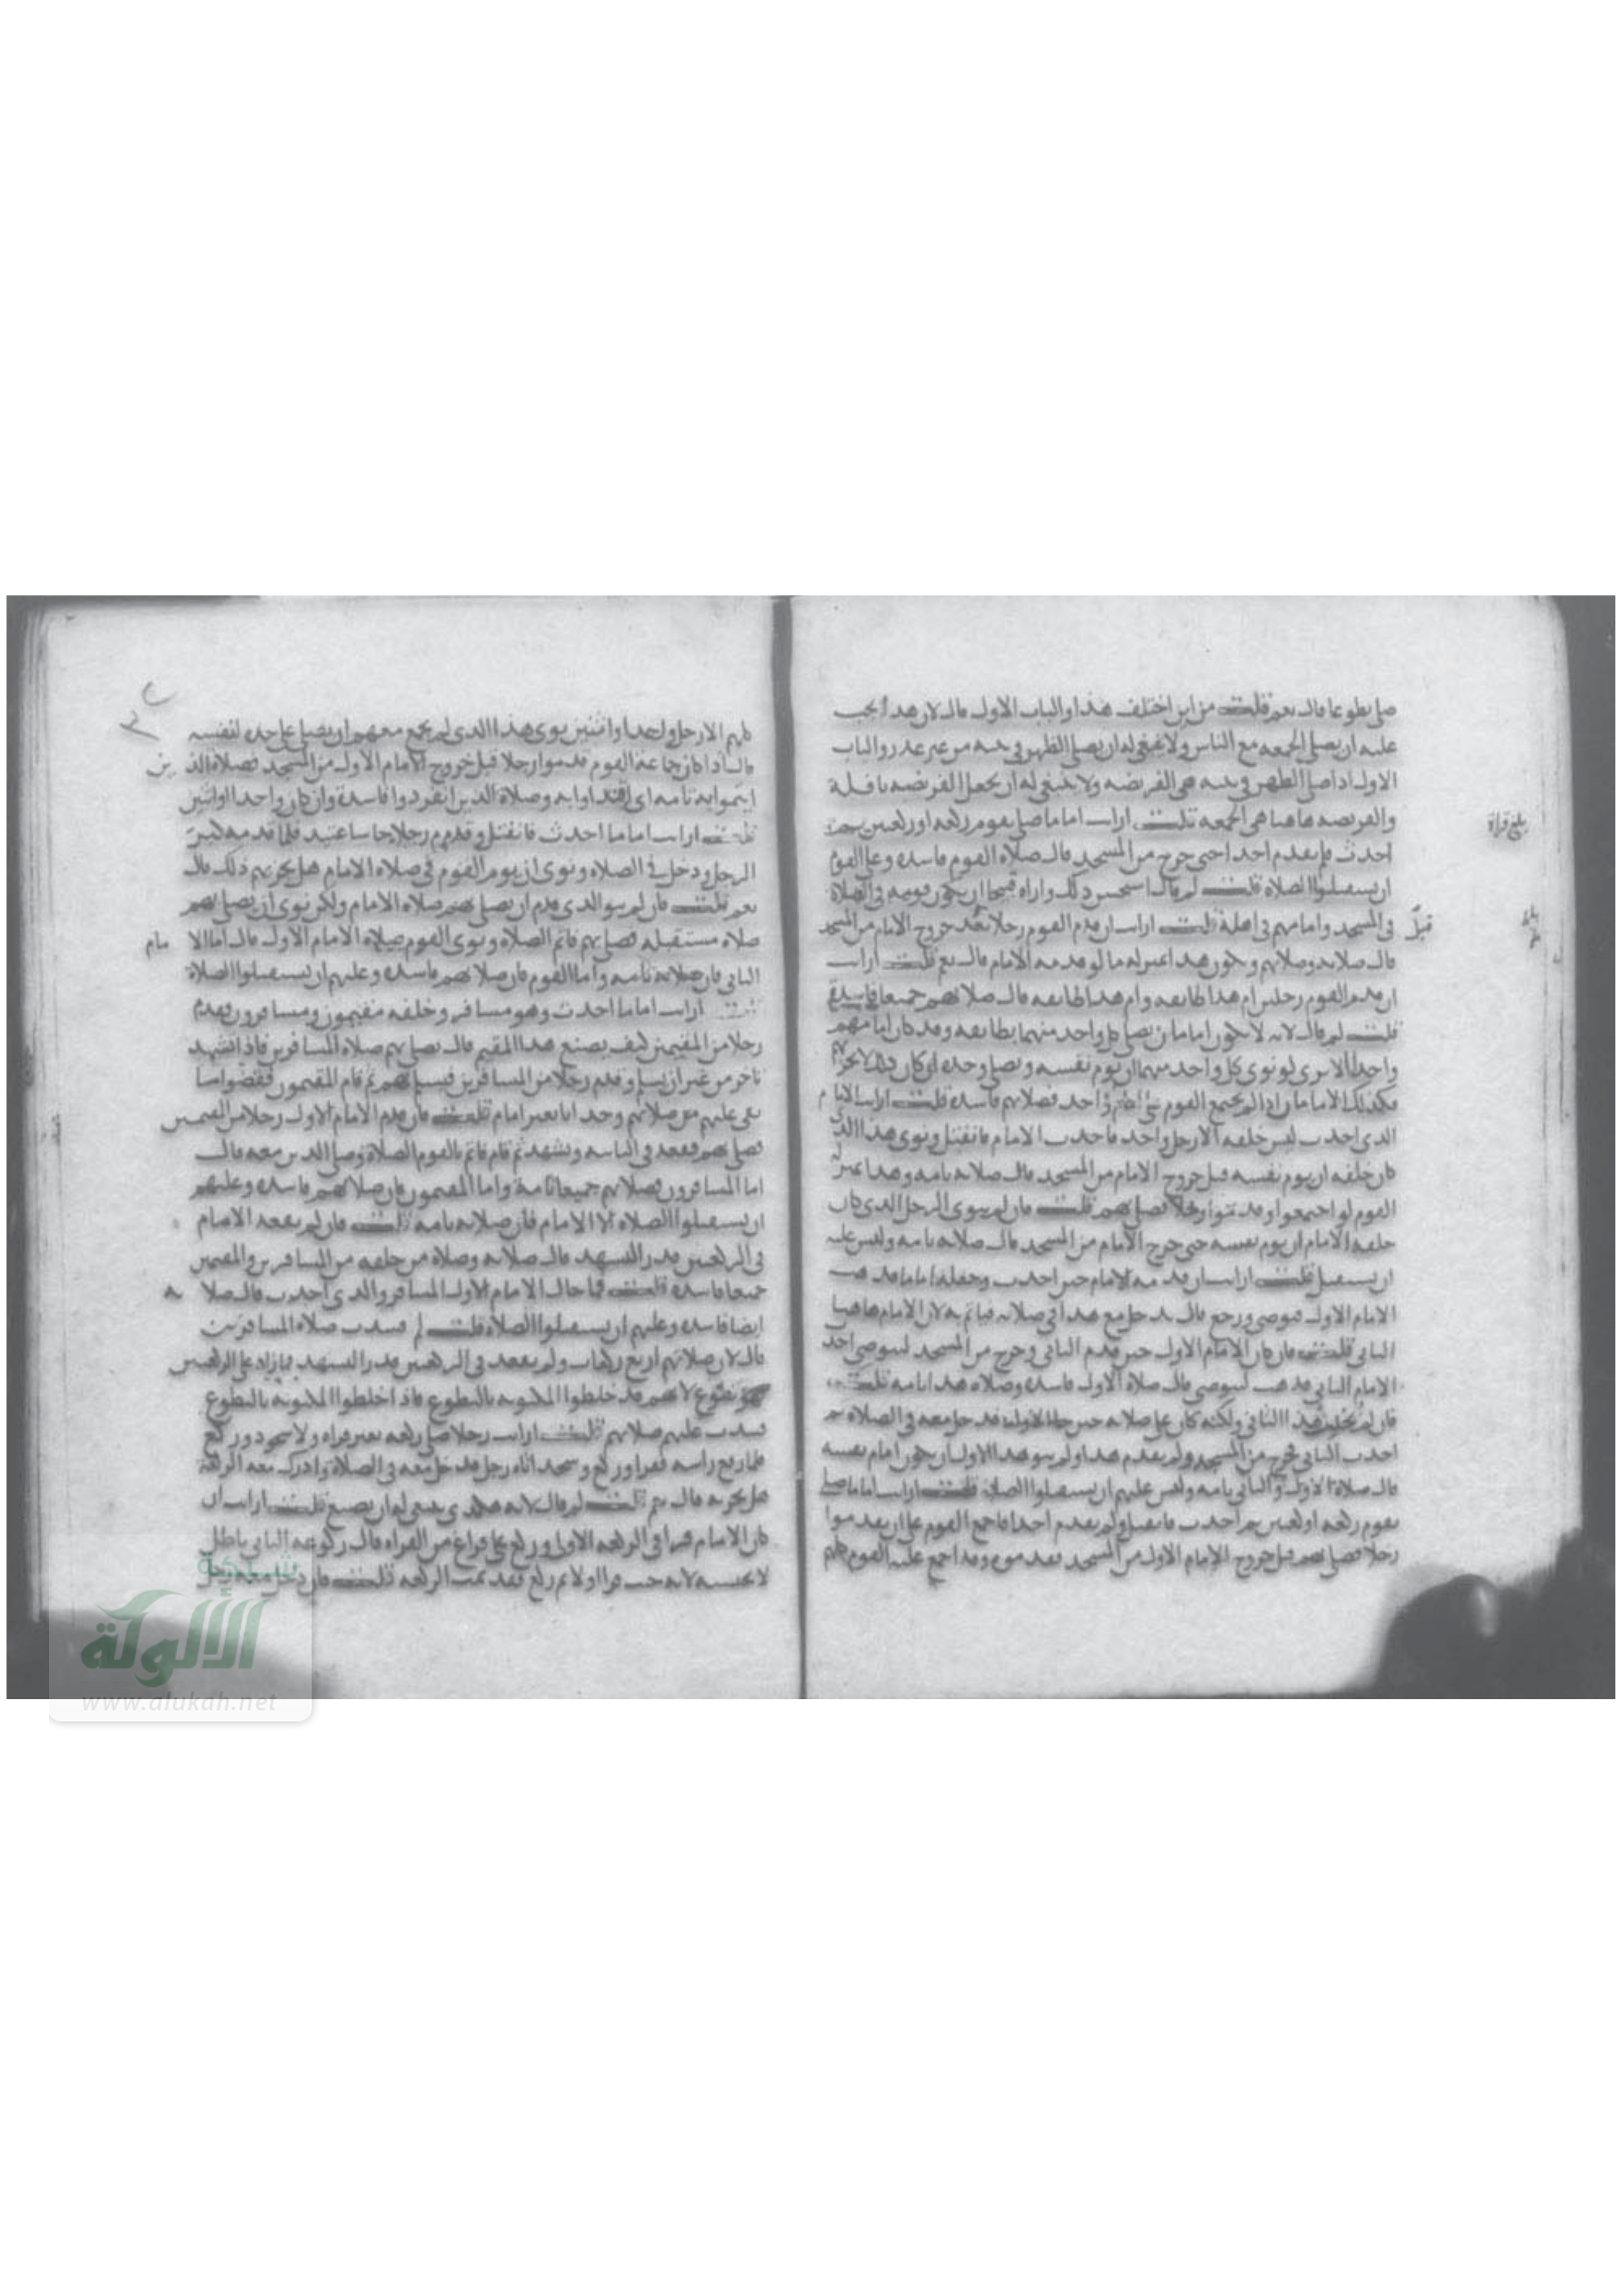 صلى تطوعا قال نعم قلت من اين اختلف هذا والباب الاول قال لان هذا يجب
عليه ان يصلي الجمعة مع الناس ولا ينبغي له ان يصلي الظهر في بيته من غير عذر والباب
الاول اذا صلى الظهر في بيته هي الفريضه ولا ينبغي له ان يجعل الفريضه نافلة
والفريضه هاهنا هي الجمعه قلت ارايت اماما صلى بقوم ركعه او ركعتين ثم
احدث فلم يقدم احدا حتى خرج من المسجد قال صلاة القوم فاسده وعلى القوم
ان يستقبلوا الصلاة قلت لم قال استحسن ذلك واراه قبيحا ان يكون قومه في الصلاة
في المسجد وامامهم في اهله قلت ارايت ان قدم القوم رجلا بعد خروج الامام من المسجد
قبل
قال صلاته وصلاتهم ويكون هذا بمنزلة ما لو قدمه الامام قال نعم قلت ارايت
ان قدم القوم رجلين ام هذا طايفه وام هذا طايفه قال صلاتهم جميعا فاسدة
قلت لم قال لانه لا يكون امامان يصلي كل واحد منهما بطايفه وقد كان امامهم
واحدا الا ترى لو نوى كل واحد منهما ان يوم نفسه ويصلي وحده كان لا يجزيهم
فكذلك الامامان اذا لم يجتمع القوم على واحد فصلاتهم فاسده قلت ارايت الامام
الذي احدث ليس خلفه الا رجل واحد فاحدث الامام فانفتل ونوى هذا الذي
كان خلفه ان يوم نفسه قبل خروج الامام من المسجد قال صلاته تامه وهذا بمنزلة
القوم لو اجتمعوا وقدموا رجلا فصلى بهم قلت فان لم ينوي الرجل الذي كان
خلفه الامام ان يوم نفسه حتى خرج الامام من المسجد قال صلاته تامه وليس عليه
ان يستقبل قلت ارايت ان قدمه الامام حين احدث وجعله اماما قد هب
الامام الاول فتوضى ورجع قال يدخل مع هذا في صلاته فياتم به لان الامام هاهنا
الثاني قلت فان كان الامام الاول حين قدم الثاني وخرج من المسجد ليتوضى احدث
الامام الثاني فذهب ليتوضى قال صلاة الاول فاسده وصلاة هذا تامه قلت
فان لم هذا الثاني ولكنه كان على صلاته حتى جا الاول فدخل معه في الصلاة ثم
احدث الثاني فخرج من المسجد ولم يقدم هذا ولم ينو هذا الاول ان يكون امام نفسه
قال صلاة الاول والثاني تامه وليس عليهم ان يستقبلوا الصلاة قلت ارايت اماما صلى
بقوم ركعه او ركعتين ثم احدث فانفتل ولم يقدم احدا فاجمع القوم على ان يقدموا
رجلا فصلى بهم قبل خروج الامام الاول من المسجد فقدموه وقد اجمع عليه القوم كلهم
بلغ قراة
كلهم الا رجل واحدا او اثنين نوى هذا الذي لم يجمع معهم ان يصلي على حده لنفسه
قال اذا كان جماعة القوم قدموا رجلا قبل خروج الامام الاول من المسجد فصلاة الذين
ايتموا به تامه اي اقتدوا به وصلاة الذين انفردوا فاسدة وان كان واحدا او اثنين
قلت ارايت اماما احدث فانفتل وقدم رجلا جا ساعتيذ فلما قدمه كبر
الرجل ودخل في الصلاه ونوى ان يوم القوم في صلاة الامام هل يجزيهم ذلك قال
نعم قلت فان لم ينو الذي قدم ان يصلي بهم صلاة الامام ولكن نوى ان يصلي بهم
صلاه مستقبله فصلى بهم فاتم الصلاه ونوى القوم صلاة الامام الاول قال اما الامام
الثاني فان صلاته تامه واما القوم فان صلاتهم فاسده وعليهم ان يستقبلوا الصلاة
قلت ارايت اماما احدث وهو مسافر وخلفه مقيمون ومسافرون فقدم
رجلا من المقيمين كيف يصنع هذا المقيم قال يصلي بهم صلاة المسافرين فاذا تشهد
تاخر من غير ان يسلم وقدم رجلا من المسافرين فيسلم بهم ثم قام المقيمون فقضوا ما
بقي عليهم من صلاتهم وحدانا بغير امام قلت فان قدم الامام الاول رجلا من المقيمين
فصلى بهم فقعد في الثانيه وتشهد ثم قام فاتم بالقوم الصلاة وصلى الذين معه قال
اما المسافرون فصلاتهم جميعا تامة واما المقيمون فان صلاتهم فاسده وعليهم
ان يستقبلوا الصلاه الا الامام فان صلاته تامه قلت فان لم يقعد الامام
في الركعتين قدر التشهد قال صلاته وصلاة من خلفه من المسافرين والمقيمين
جميعا فاسده قلت فما حال الامام الاول المسافر والذي احدث قال صلاته
ايضا فاسده وعليهم ان يستقبلوا الصلاه قلت لم فسدت صلاة المسافرين
قال لان صلاتهم اربع ركعات ولم يقعد في الركعتين قدر التشهد فما زاد على الركعتين
فهو تطوع لانهم قد خلطوا المكتوبه بالتطوع فاذا خلطوا المكتوبه بالتطوع
فسدت عليهم صلاتهم قلت ارايت رجلا صلى ركعه بغير قراه ولا سجود وركع
فلما رفع راسه فقرا وركع وسجد اتاه رجل فدخل معه في الصلاة وادرك معه الركعة
هل يجزيه قال نعم قلت لم قال لانه هكذى ينبغي له ان يصنع قلت ارايت ان
كان الامام قرا في الركعه الاولى وركع على فراغ من القراه قال ركوعه الثاني باطل
لا يحتسبه لانه حيث قرا اولا ثم ركع فقد تمت الركعه قلت فان دخل معه رجل
شبكة
الألوكة
www.alukah.net